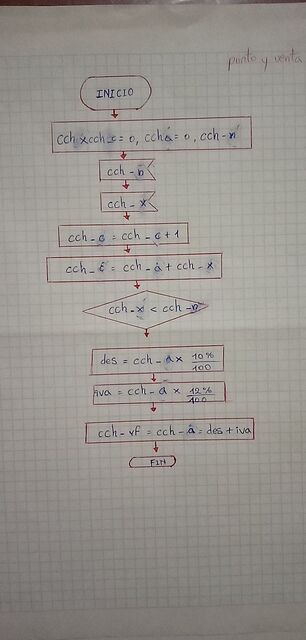 punto y venta
INICIO
cch_x cch_c=0, cch_a=0, cch_n
cch_n
cch_x
cch_c = cch_c+1
cch_c = cch_a + cch_x
cch_x < cch_n
des = cch_a x 10%/100
iva = cch_a x 12%/100
cch_vf = cch_a = des + iva
FIN